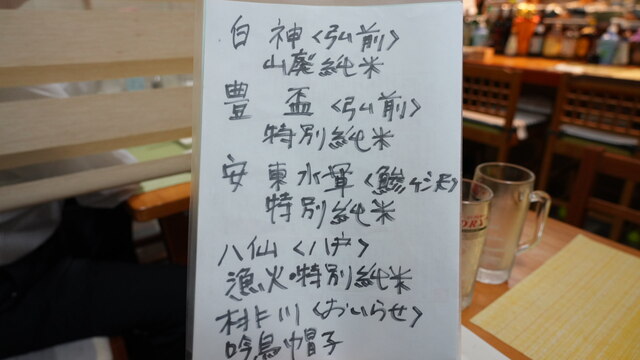 白神<弘前>
山廃純米
豊盃<弘前>
特別純米
安東水軍<鯵ヶ沢>
特別純米
八仙<八戸>
漁火・特別純米
桃川<おいらせ>
吟鳥帽子